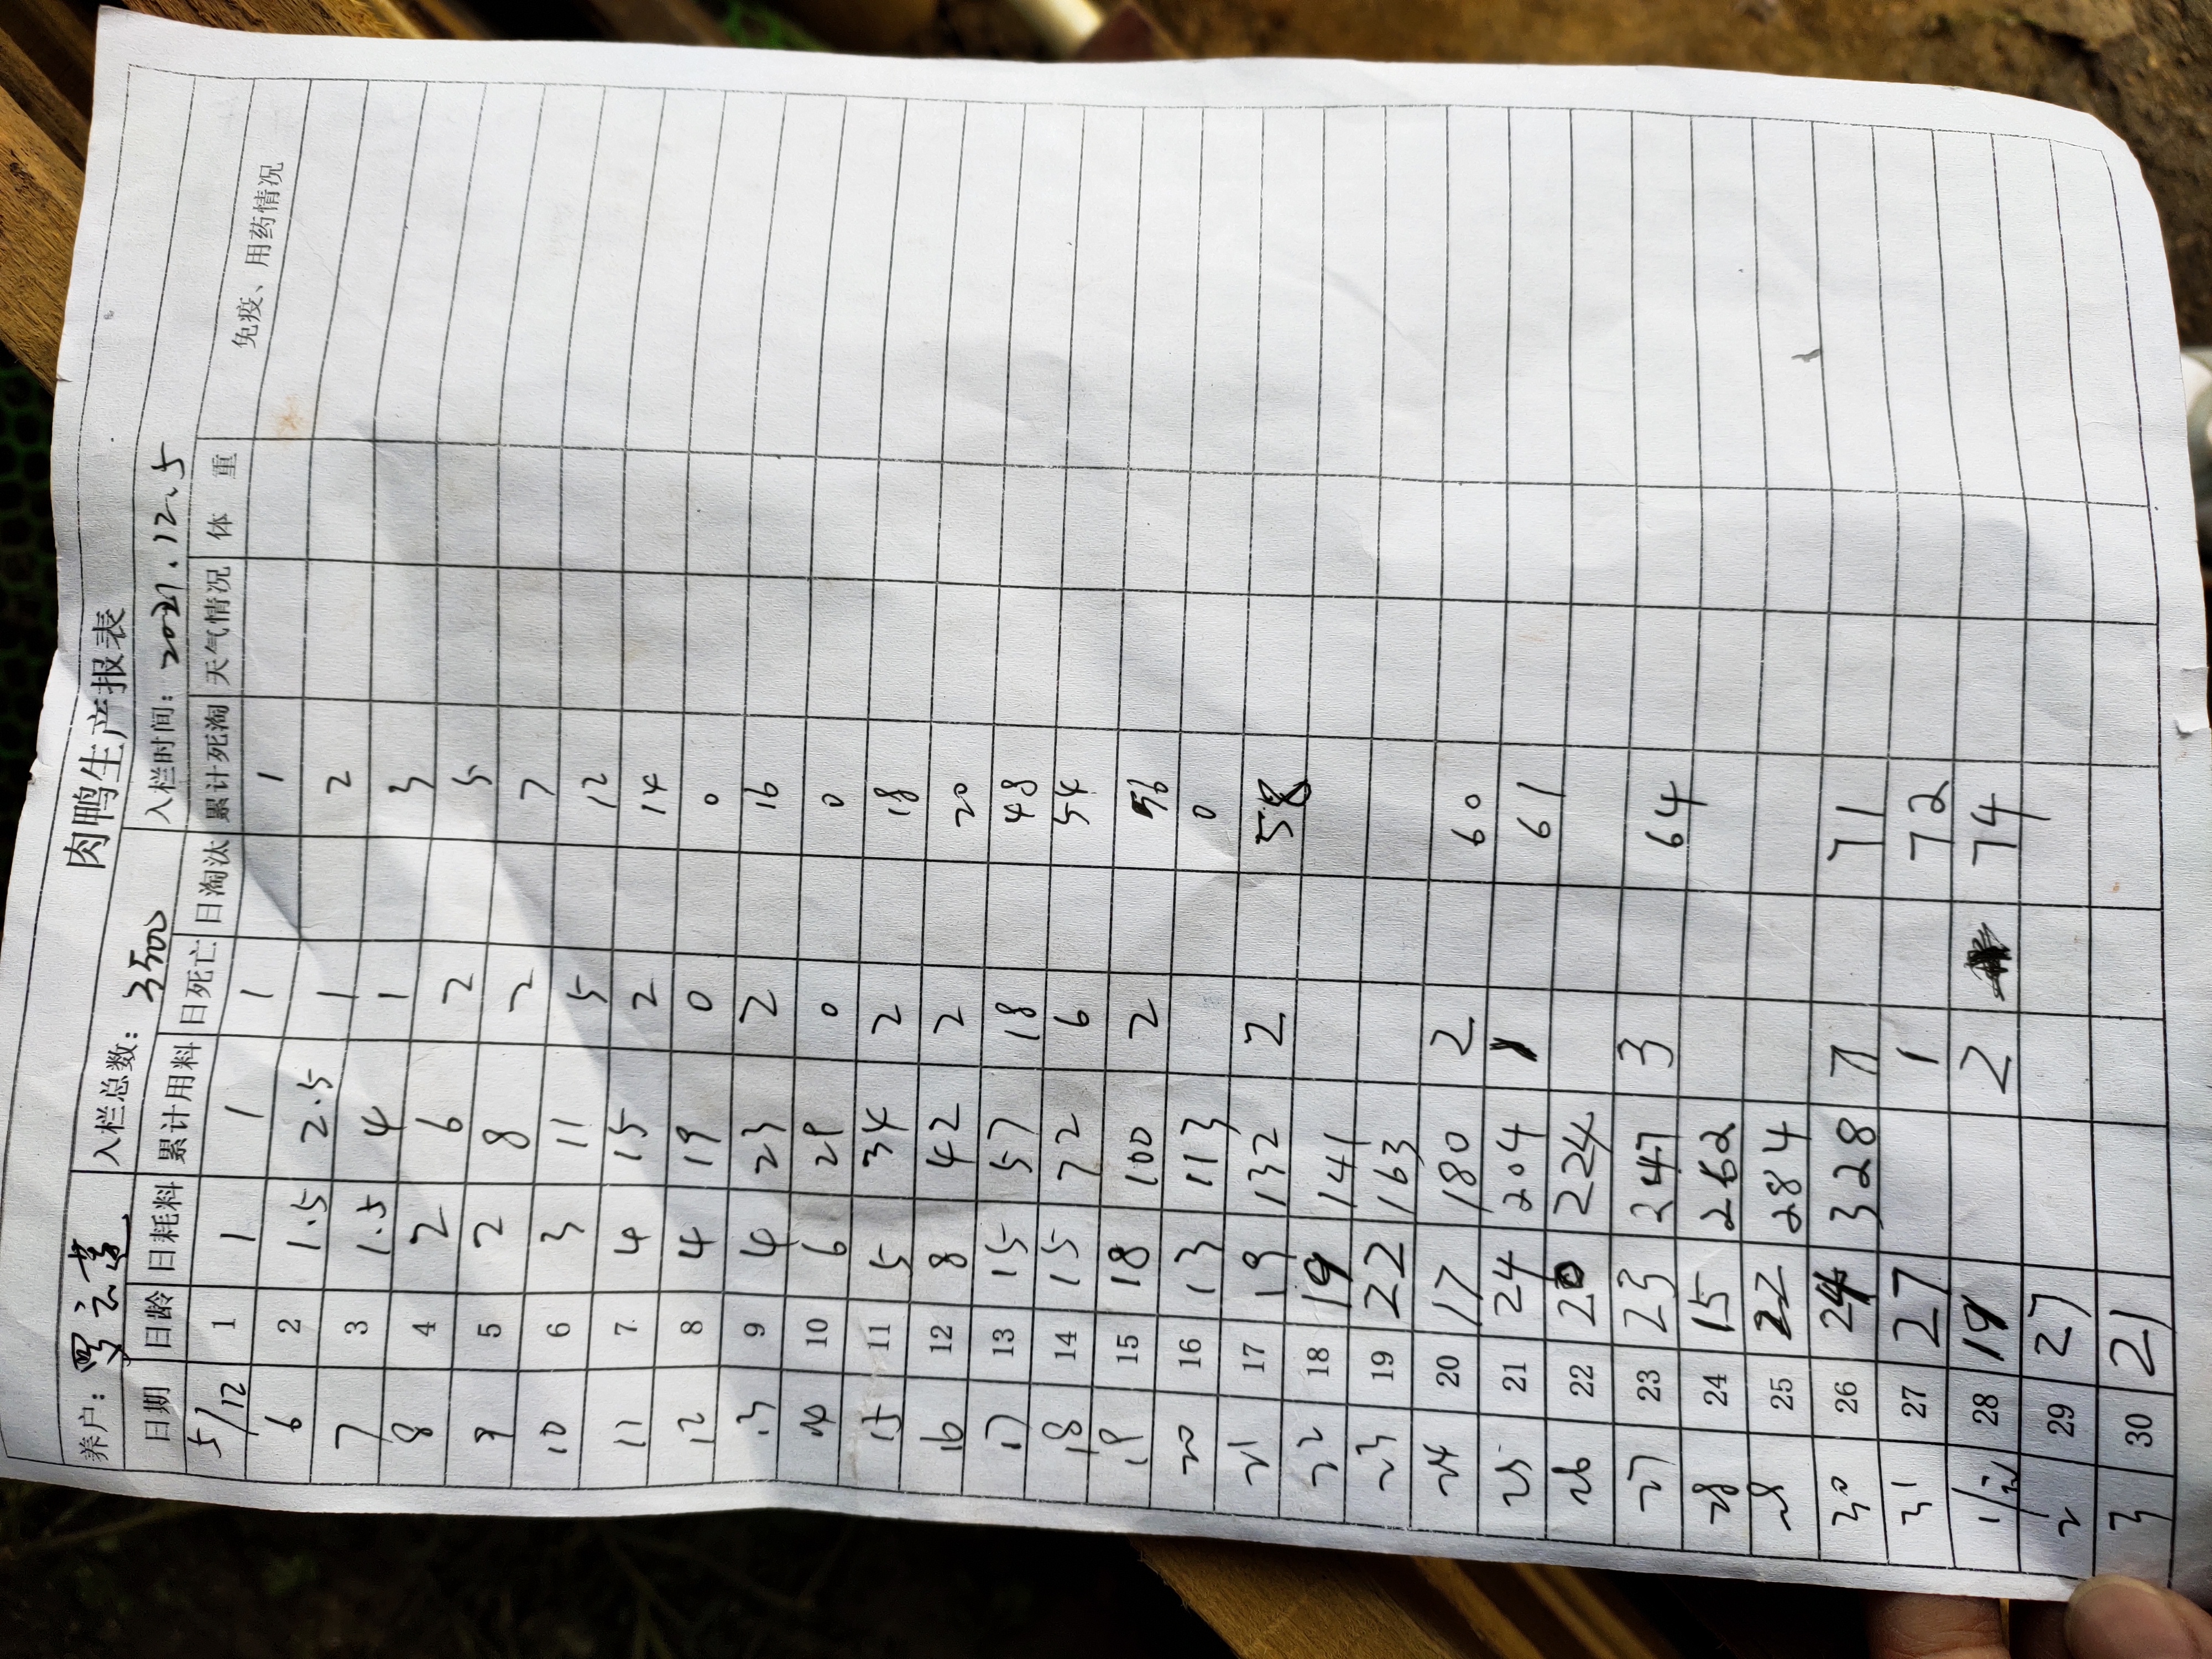 肉鸭生产报表
养户: 罗云 入栏总数: 3500 入栏时间: 2021.12.5
日期 日龄 日耗料 累计用料 日死亡 日淘汰 累计死淘 天气情况 体 重 免疫、用药情况
5/12 1 1 1 1 1
6 2 1.5 2.5 1 2
7 3 1.5 4 1 3
8 4 2 6 2 5
9 5 2 8 2 7
10 6 3 11 5 12
11 7 4 15 2 14
12 8 4 19 0 0
13 9 4 23 2 16
14 10 6 29 0 0
15 11 5 34 2 18
16 12 8 42 2 20
17 13 15 57 18 48
18 14 15 72 6 54
19 15 18 100 2 56
20 16 13 113 0
21 17 19 132 2 58
22 18 19 141
23 19 22 163
24 20 17 180 2 60
25 21 24 204 1 61
26 22 20 224
27 23 23 247 3 64
28 24 15 262
29 25 22 284
30 26 24 328 7 71
31 27 27 1 72
28 19 2 74
2 29 27
3 30 21